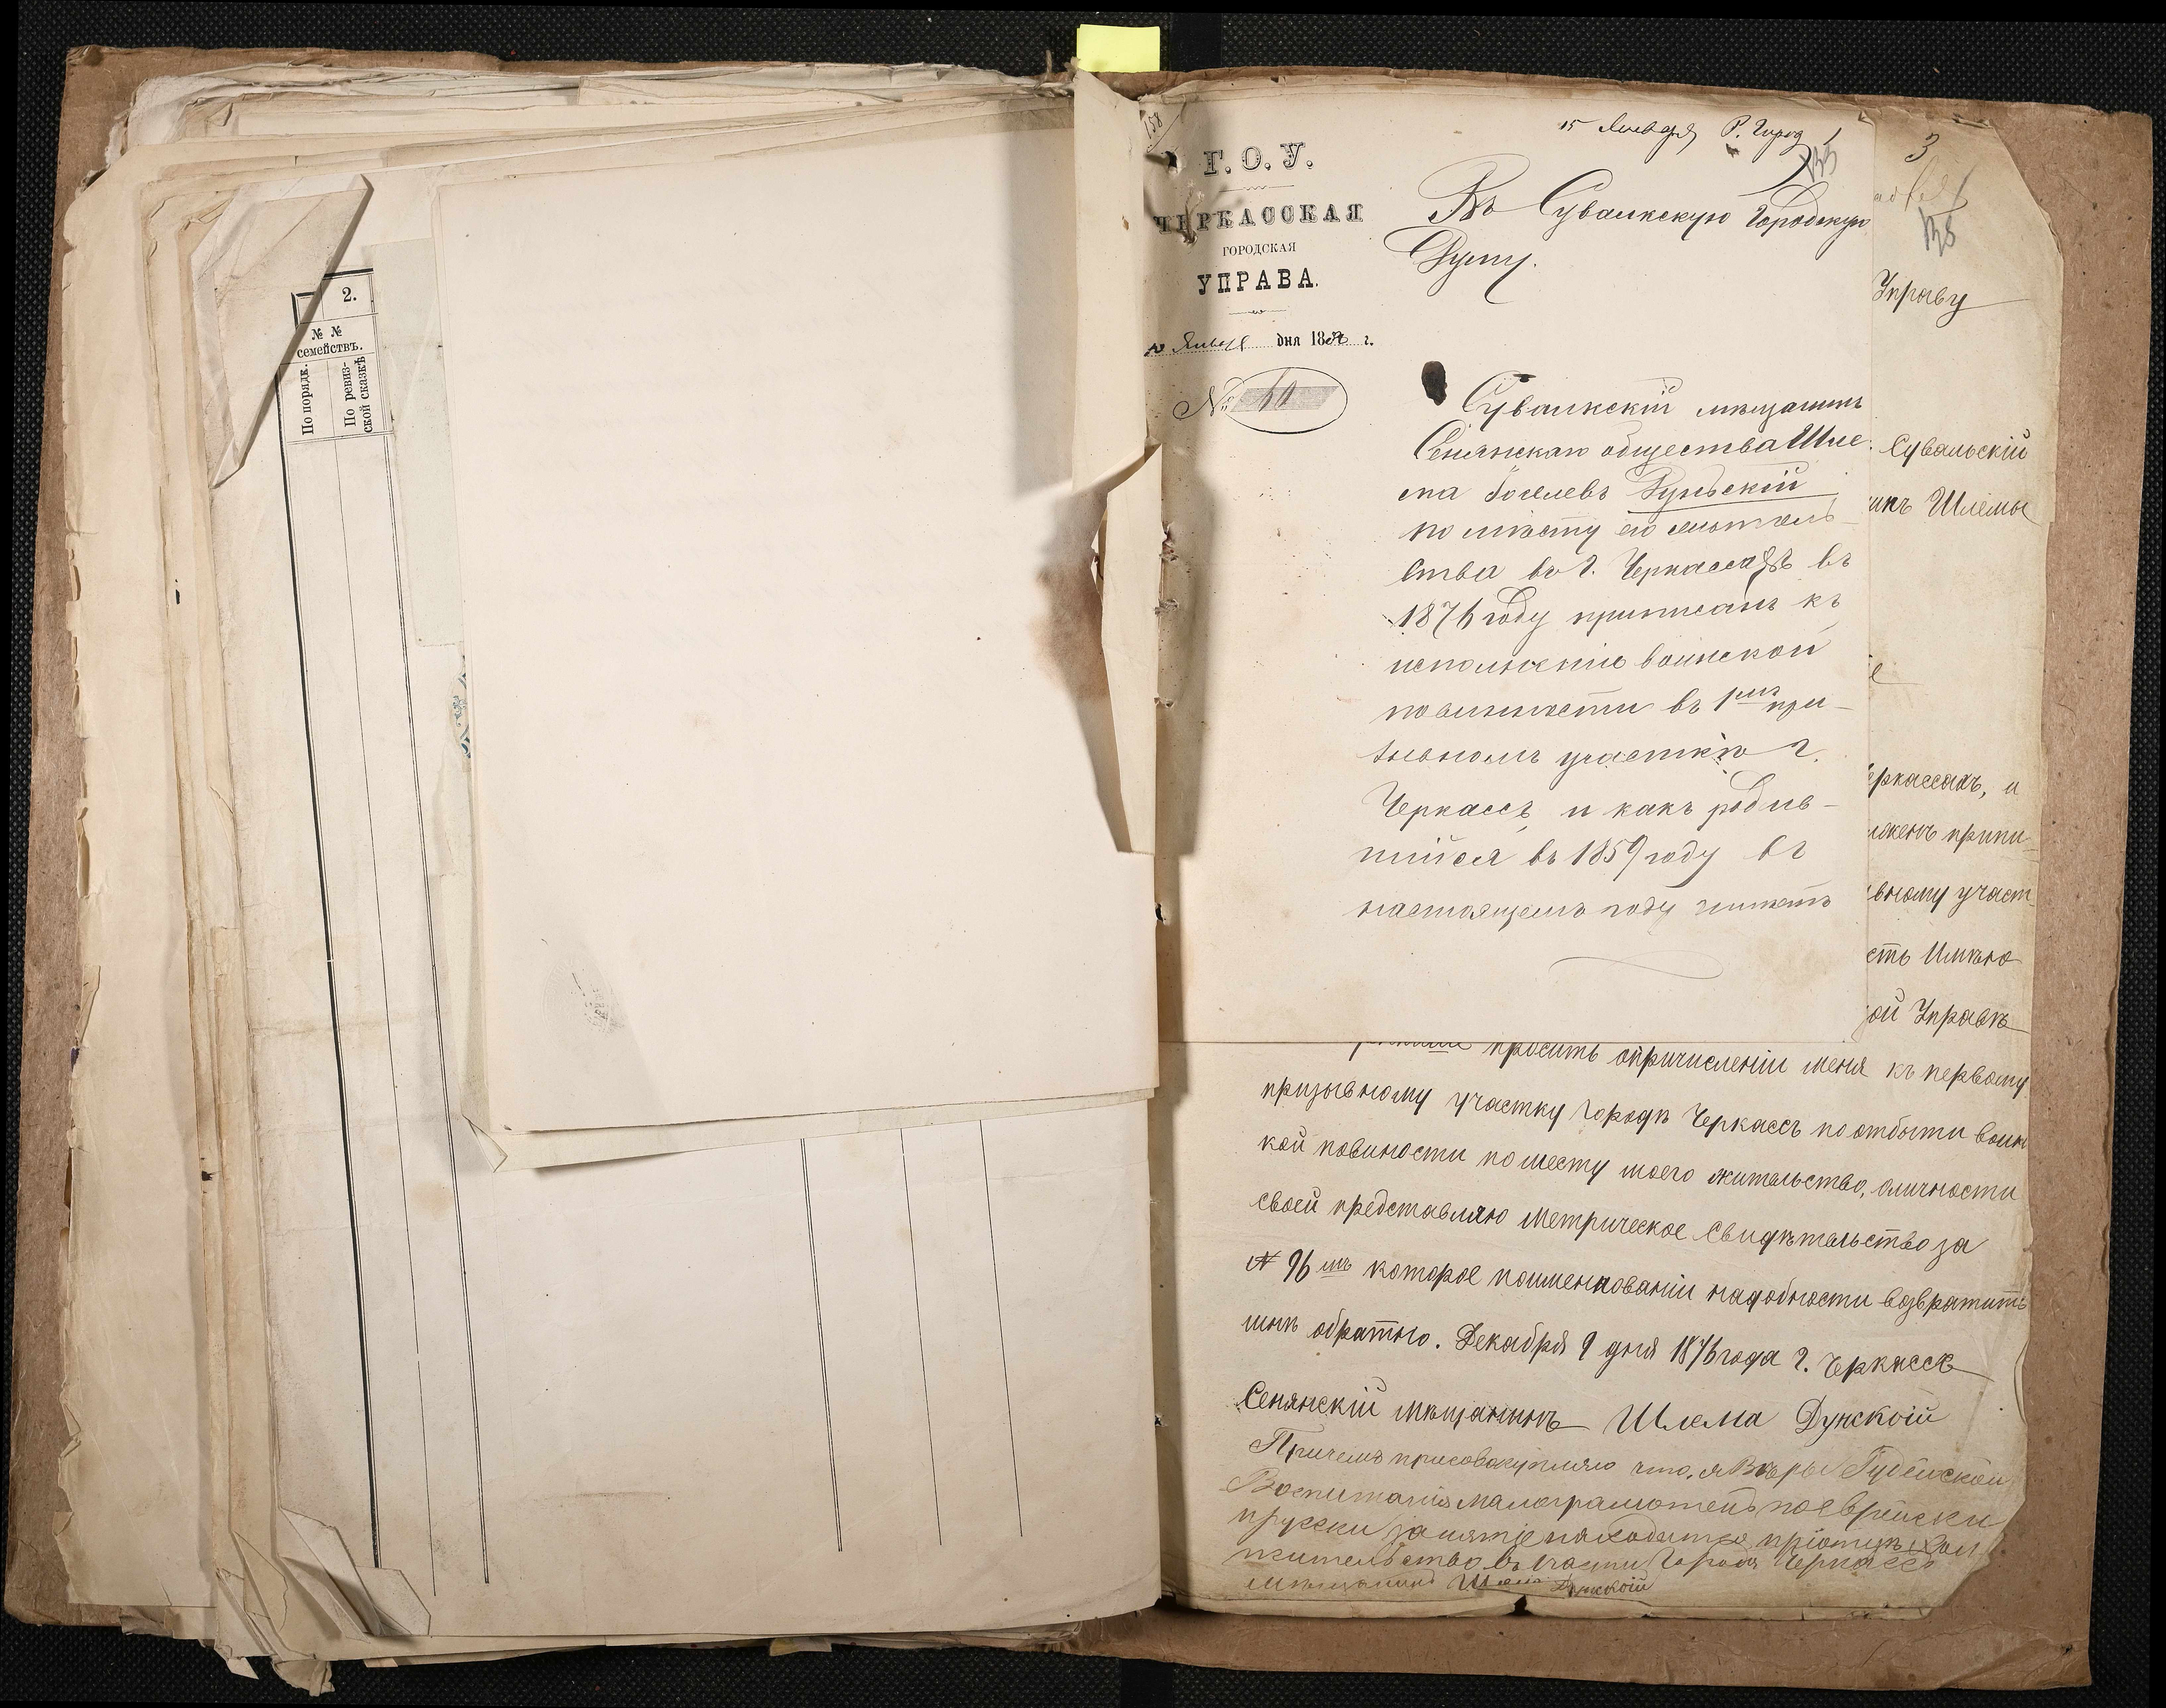 2.
№ №
семействъ.
По порядк.
По ревиз-
ской сказкѣ
158
Г. О. У.
ЧЕРКАССКАЯ
ГОРОДСКАЯ
УПРАВА.
Января дня 18 г.
№
15 Января Р. Город
Въ Сувалкскую Городскую
Думу.
Сувалкскій мѣщанинъ
Сенянскаго общества Шле-
ма Дунскій
по мѣсту его житель-
ства въ г. Черкассахъ въ
1876 году приписанъ къ
исполненію воинской
повинности въ 1мъ при-
зывномъ участкѣ г.
Черкассъ и какъ родив-
шийся въ 1859 году въ
настоящемъ году
3
Управу
Сувальскій
Шлемы
еркассахъ, и
припи-
вному участ-
сть Имѣю
ой Управѣ
просить опричисленіи меня къ первому
призывному участку городѣ Черкассъ по отбыти воин
кой повиности по месту моего жительство, оличности
своей представляю Метрическое Свидѣтельство за
№ 96 которое поименковании надобности возвратить
мнѣ обратно. Декабря 9 дня 1876 года г. Черкассъ
Сенянскій мѣщанинъ Шлема Дунской
Причемъ присовокупляю что, я Вѣры Іудейской
Воспитания малограмотенъ поеврейски
ирусски занятіе находится
жительство въ части Города Черкассъ
Мѣщанинъ Шлема Дунской